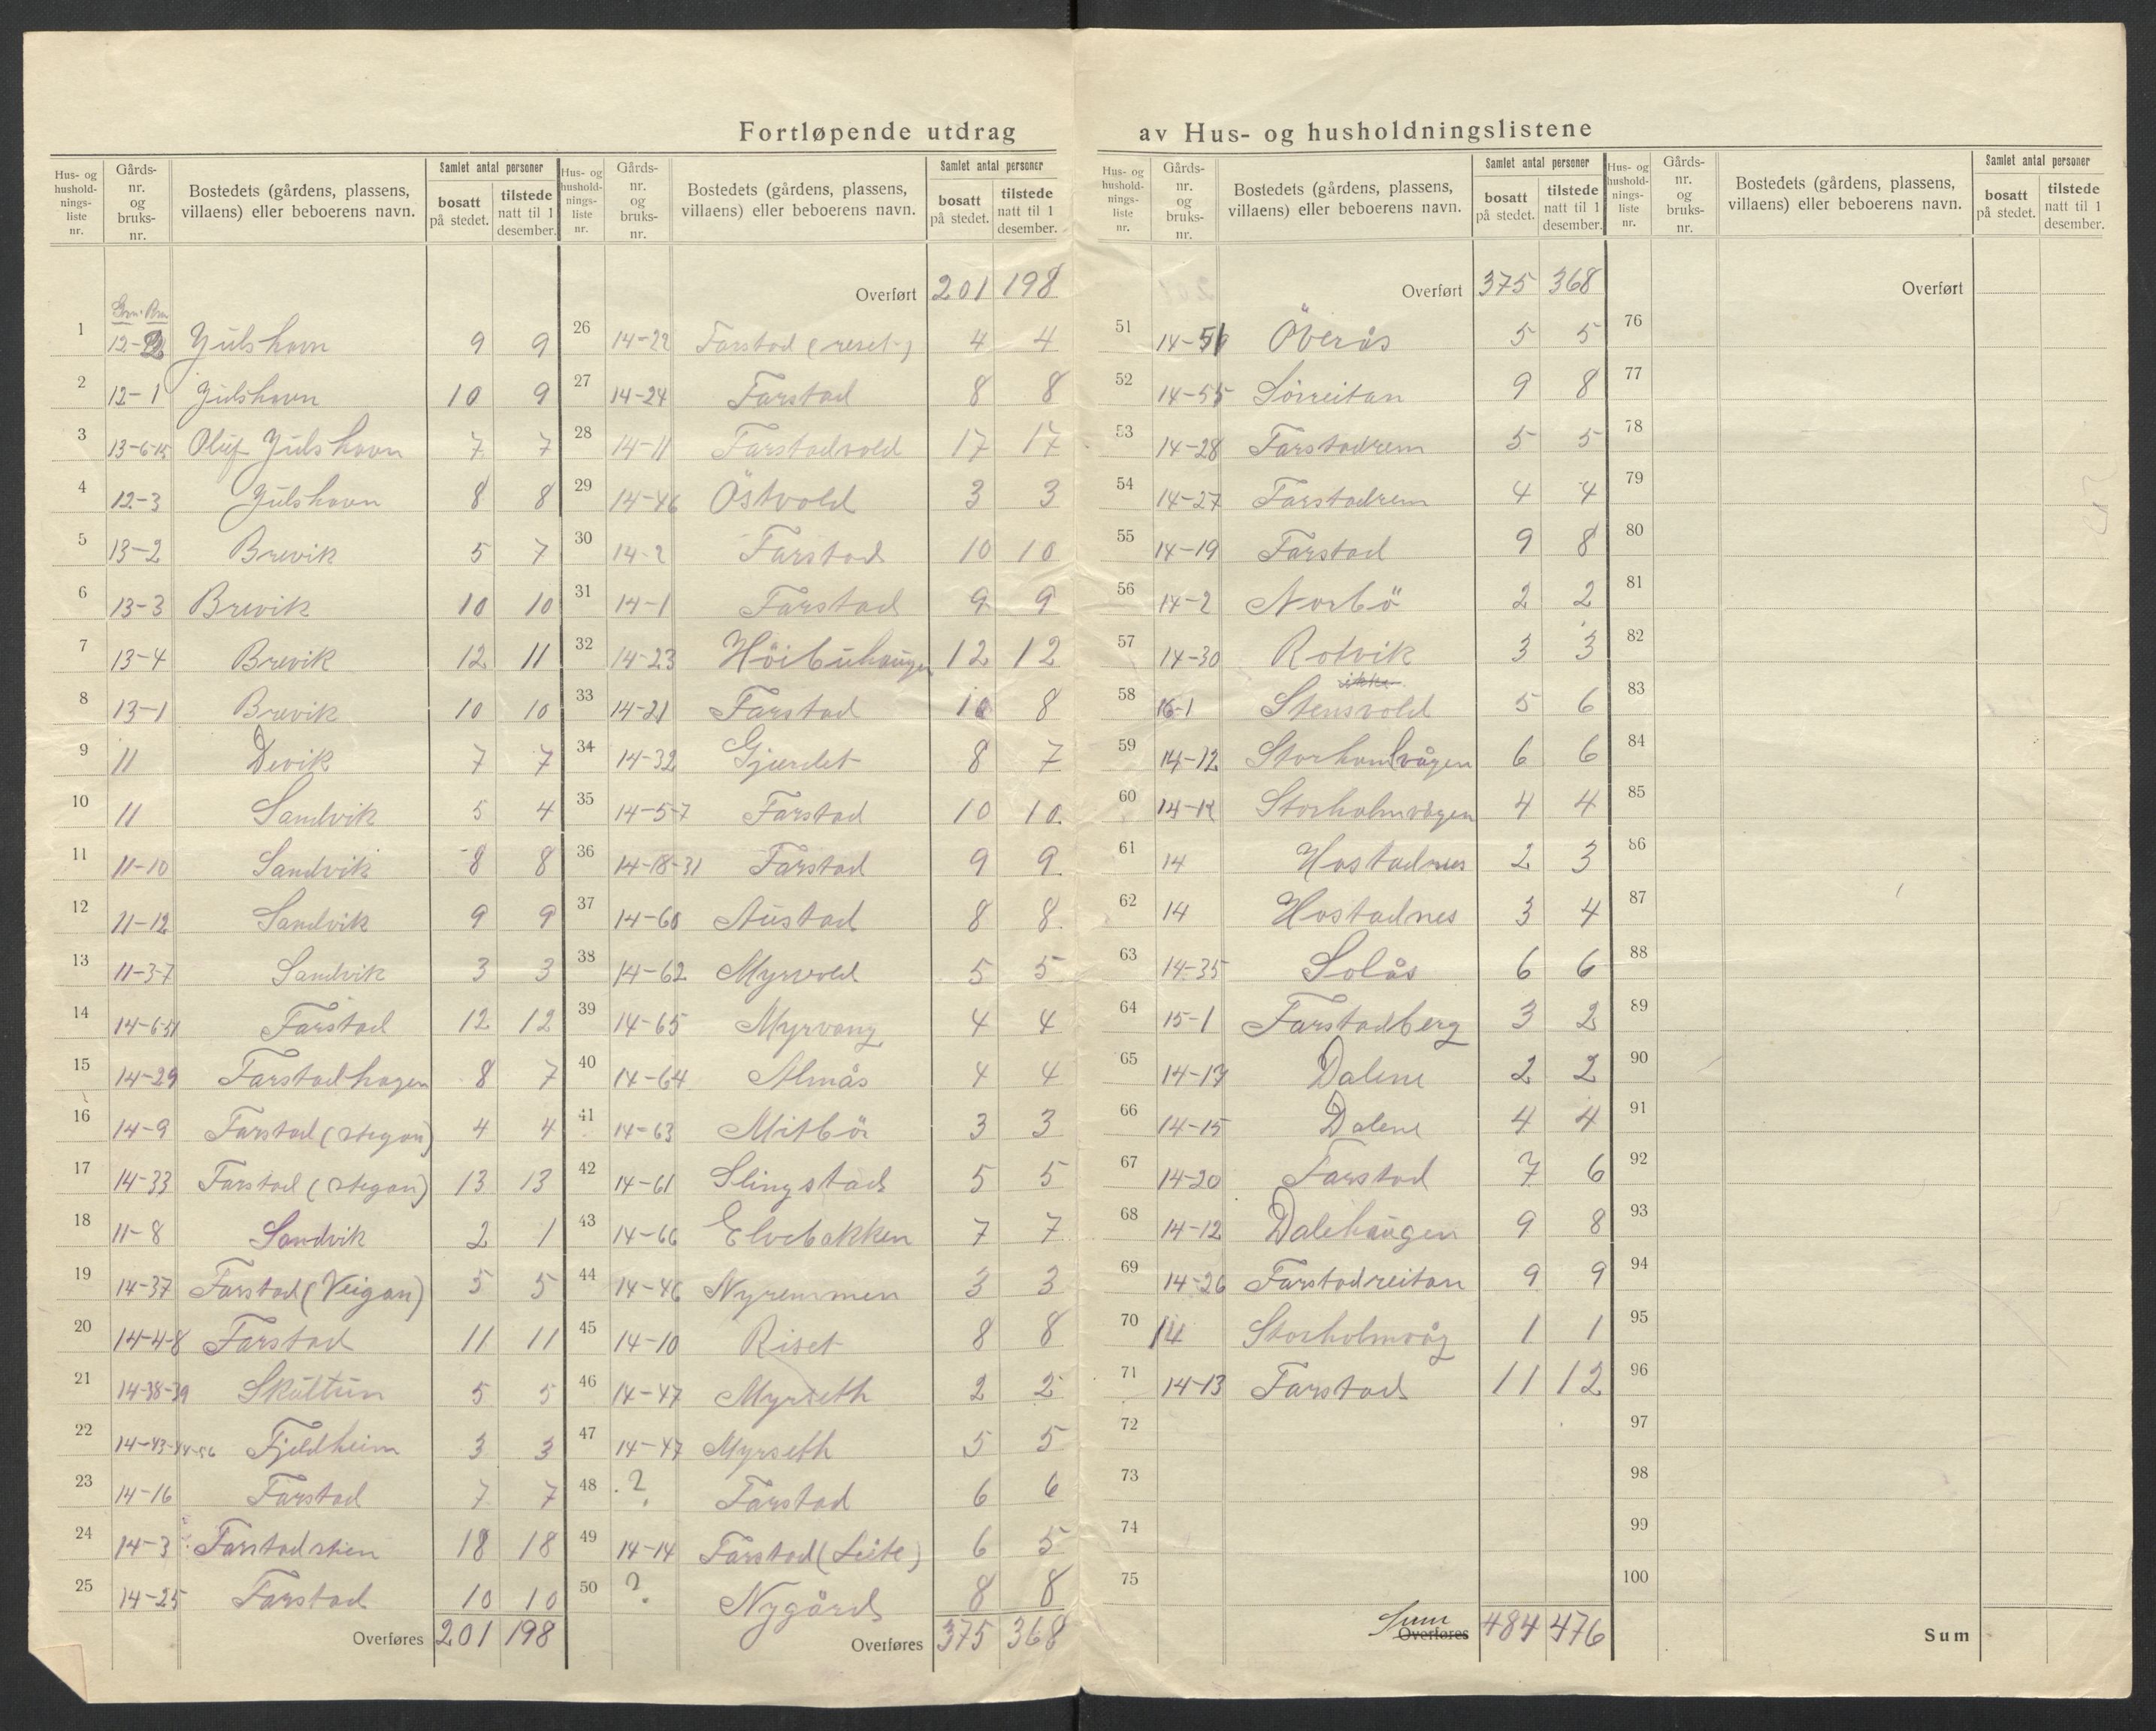 Fortløpende utdrag av Hus- og husholdningslistene
Hus- og husholdnings-liste nr. | Gårds-nr. og bruks-nr. | Bostedets (gårdens, plassens, villaens) eller beboerens navn. | Samlet antal personer | bosatt på stedet. | tilstede natt til 1 desember.
Gnr. Bnr
1 12-2 Julshavn 9 9
2 12-1 Julshavn 10 9
3 13-6-15 Oluf Julshavn 7 7
4 12-3 Julshavn 8 8
5 13-2 Brevik 5 7
6 13-3 Brevik 10 10
7 13-4 Brevik 12 11
8 13-1 Brevik 10 10
9 11 Devik 7 7
10 11 Sandvik 5 4
11 11-10 Sandvik 8 8
12 11-12 Sandvik 9 9
13 11-3-7 Sandvik 3 3
14 14-6-51 Farstad 12 12
15 14-29 Farstadhagen 8 7
16 14-9 Farstad (Stegan) 4 4
17 14-33 Farstad (Stegan) 13 13
18 11-8 Sandvik 2 1
19 14-37 Farstad (Veigan) 5 5
20 14-4-8 Farstad 11 11
21 14-38-39 Skultun 5 5
22 14-43-44-56 Fjeldheim 3 3
23 14-16 Farstad 7 7
24 14-3 Farstadstien 18 18
25 14-25 Farstad 10 10
Overføres 201 198
Hus- og husholdnings-liste nr. | Gårds-nr. og bruks-nr. | Bostedets (gårdens, plassens, villaens) eller beboerens navn. | Samlet antal personer | bosatt på stedet. | tilstede natt til 1 desember.
Overført 201 198
26 14-22 Farstad (reset) 4 4
27 14-24 Farstad 8 8
28 14-11 Farstadvold 17 17
29 14-46 Östvold 3 3
30 14-2 Farstad 10 10
31 14-1 Farstad 9 9
32 14-23 Höibuhaugen 12 12
33 14-21 Farstad 10 8
34 14-32 Gjerdet 8 7
35 14-5-7 Farstad 10 10
36 14-18-31 Farstad 9 9
37 14-60 Austad 8 8
38 14-62 Myrvold 5 5
39 14-65 Myrvang 4 4
40 14-64 Almås 4 4
41 14-63 Mitbö 3 3
42 14-61 Slingstad 5 5
43 14-66 Elvebakken 7 7
44 14-46 Nyremmen 3 3
45 14-10 Riset 8 8
46 14-47 Myrseth 2 2
47 14-47 Myrseth 5 5
48 ? Farstad 6 6
49 14-14 Farstad (Leite) 6 5
50 ? Nygård 8 8
Overføres 375 368
Hus- og husholdnings-liste nr. | Gårds-nr. og bruks-nr. | Bostedets (gårdens, plassens, villaens) eller beboerens navn. | Samlet antal personer | bosatt på stedet. | tilstede natt til 1 desember.
Overført 375 368
51 Överås 5 5
52 14-55 Sörreitan 9 8
53 14-28 Farstadrem 5 5
54 14-27 Farstadrem 4 4
55 14-19 Farstad 9 8
56 14-2 Norbö 2 2
57 14-30 Rotvik 3 3
58 16-1 Stensvold 5 6
59 14-12 Storholmvågen 6 6
60 14-12 Storholmvågen 4 4
61 14 Hostadnes 2 3
62 14 Hostadnes 3 4
63 14-35 Solås 6 6
64 15-1 Farstadberg 3 2
65 14-17 Dalene 2 2
66 14-15 Dalene 4 4
67 14-20 Farstad 7 6
68 14-12 Dalehaugen 9 8
69 14-26 Farstadreitan 9 9
70 14 Storholmvåg 1 1
71 14-13 Farstad 11 12
72
73
74
75
Sum Overføres 484 476
Hus- og husholdnings-liste nr. | Gårds-nr. og bruks-nr. | Bostedets (gårdens, plassens, villaens) eller beboerens navn. | Samlet antal personer | bosatt på stedet. | tilstede natt til 1 desember.
Overført
76
77
78
79
80
81
82
83
84
85
86
87
88
89
90
91
92
93
94
95
96
97
98
99
100
Sum